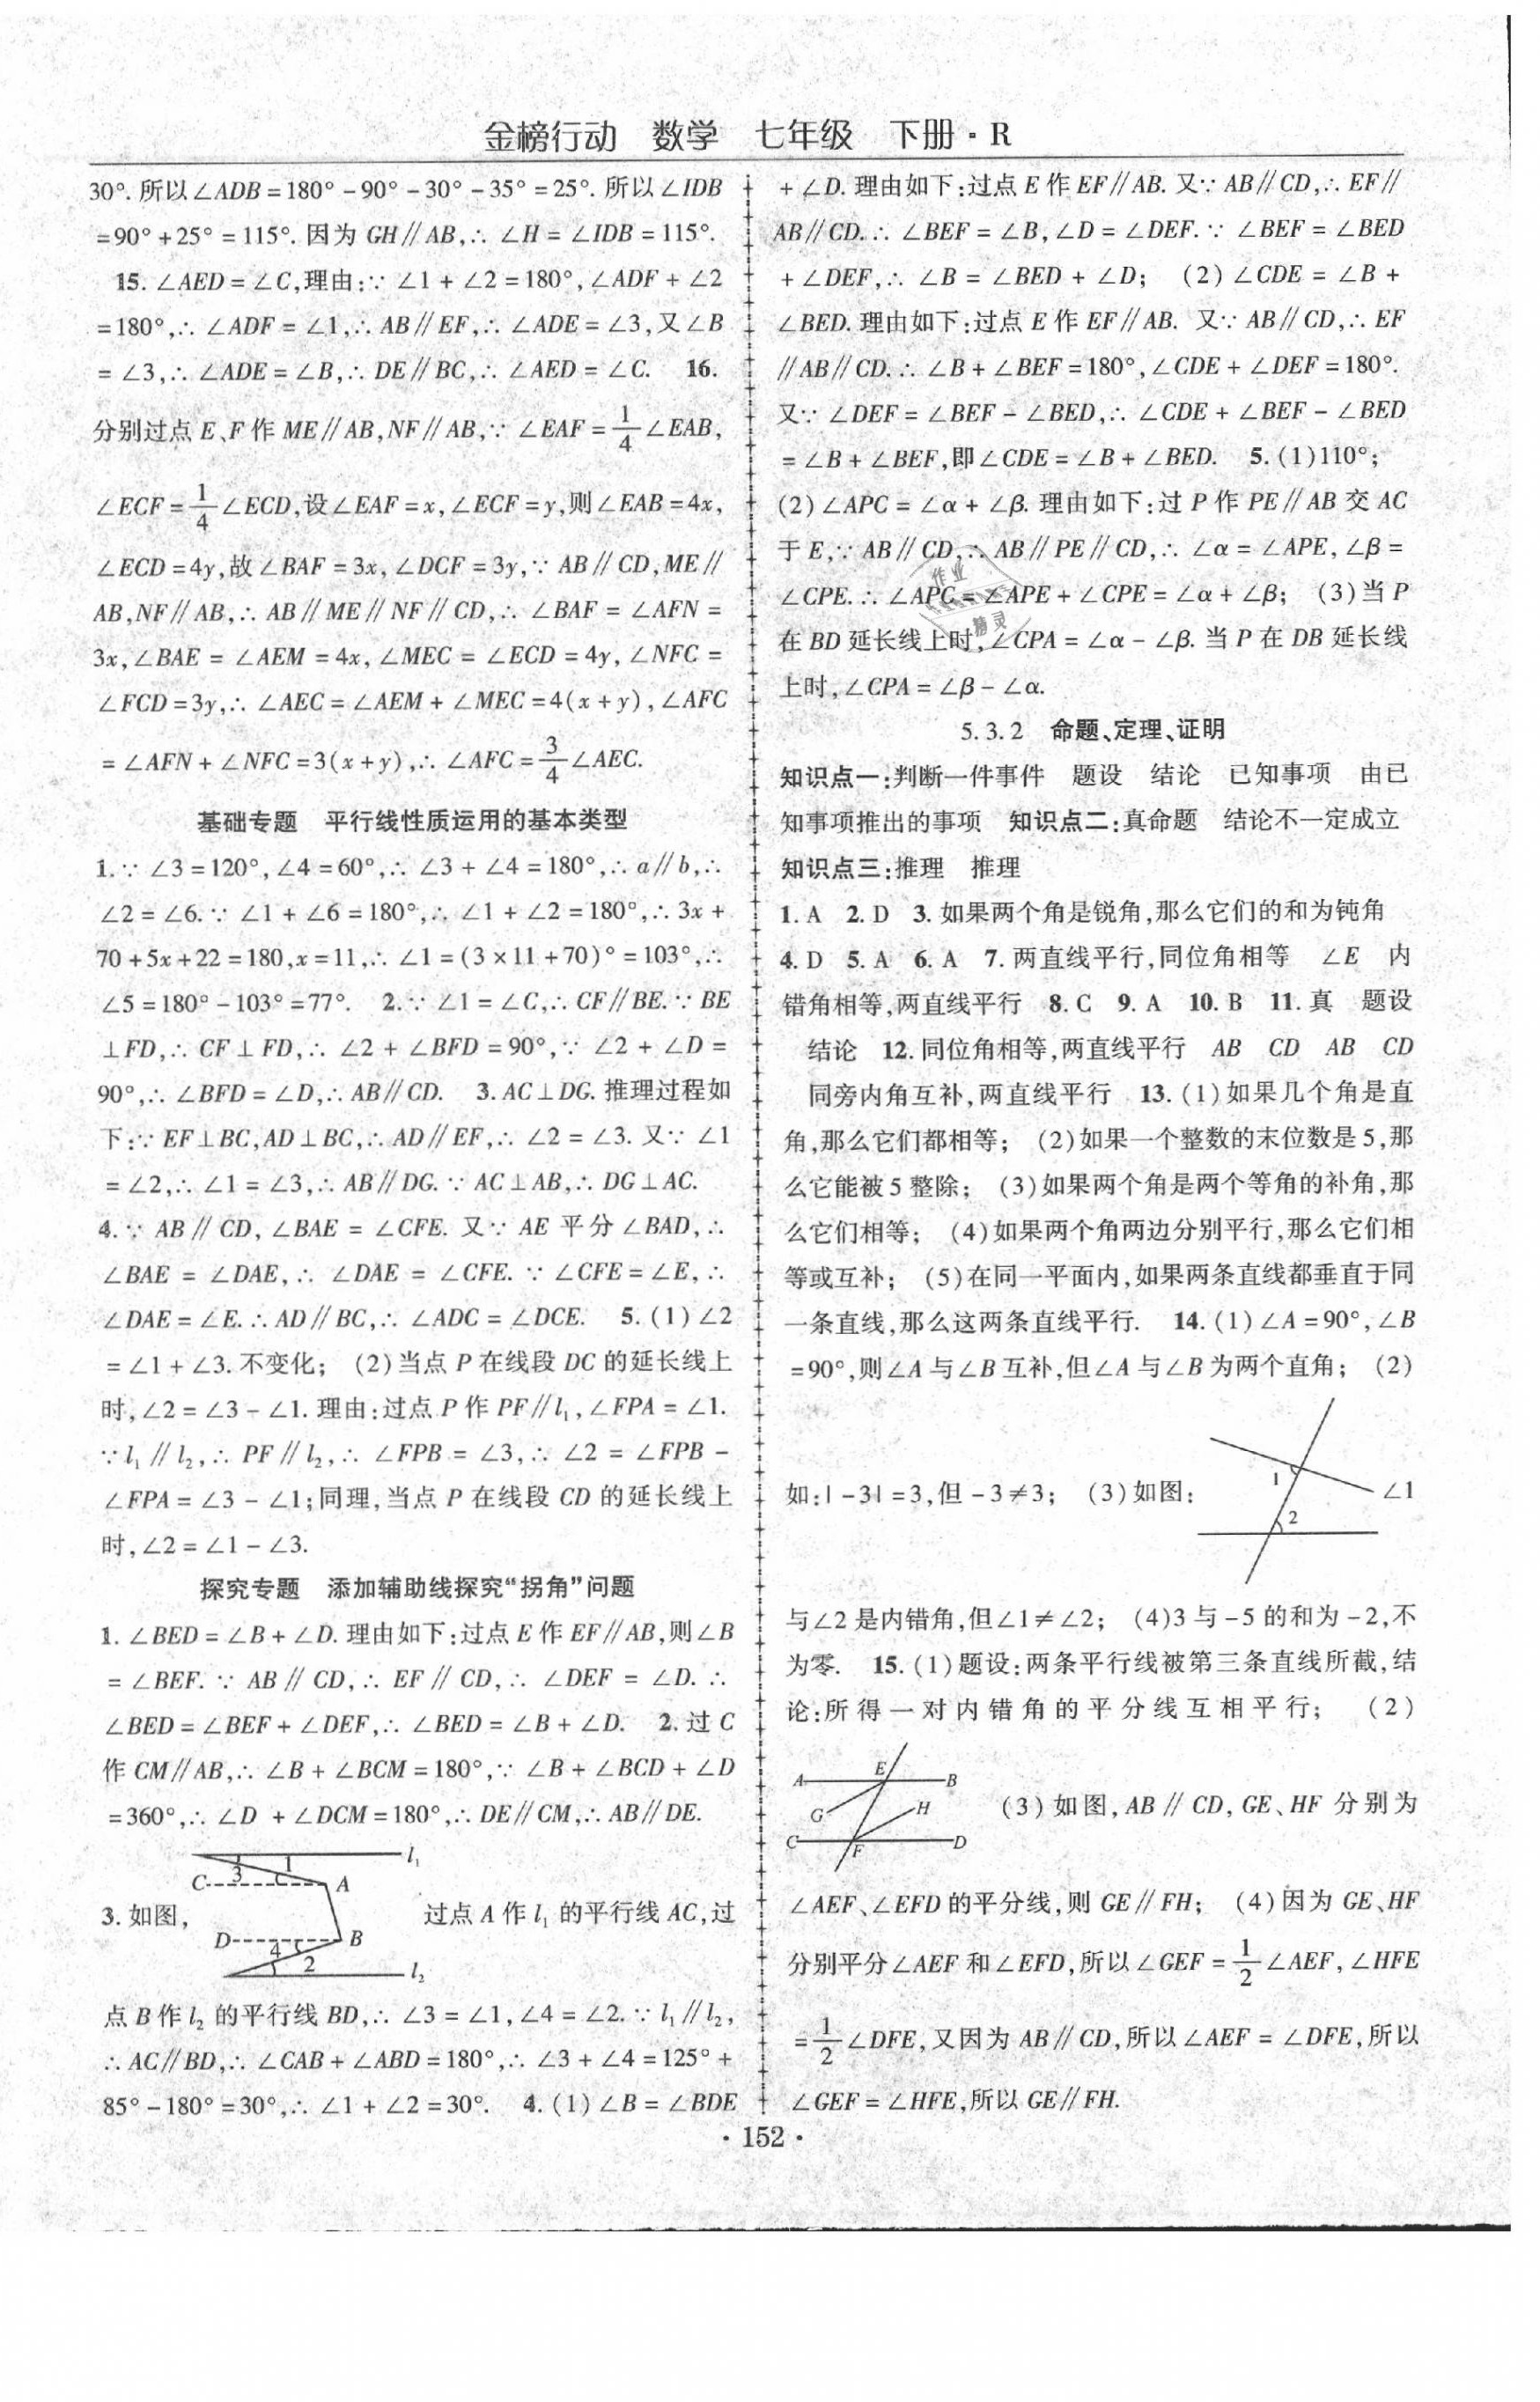 金榜行动 数学 七年级 下册·R
30°. 所以∠ADB=180°-90°-30°-35°=25°. 所以∠IDB
=90°+25°=115°. 因为 GH∥AB,∴ ∠H=∠IDB=115°.
15. ∠AED=∠C,理由:∵ ∠1+∠2=180°,∠ADF+∠2
=180°,∴ ∠ADF=∠1,∴ AB∥EF,∴ ∠ADE=∠3,又∠B
=∠3,∴ ∠ADE=∠B,∴ DE∥BC,∴ ∠AED=∠C. 16.
分别过点 E、F 作 ME∥AB,NF∥AB,∵ ∠EAF=1/4∠EAB,
∠ECF=1/4∠ECD,设∠EAF=x,∠ECF=y,则∠EAB=4x,
∠ECD=4y,故∠BAF=3x,∠DCF=3y,∵ AB∥CD,ME∥
AB,NF∥AB,∴ AB∥ME∥NF∥CD,∴ ∠BAF=∠AFN=
3x,∠BAE=∠AEM=4x,∠MEC=∠ECD=4y,∠NFC=
∠FCD=3y,∴ ∠AEC=∠AEM+∠MEC=4(x+y),∠AFC
=∠AFN+∠NFC=3(x+y),∴ ∠AFC=3/4∠AEC.
基础专题 平行线性质运用的基本类型
1.∵ ∠3=120°,∠4=60°,∴ ∠3+∠4=180°,∴ a∥b,∴
∠2=∠6.∵ ∠1+∠6=180°,∴ ∠1+∠2=180°,∴ 3x+
70+5x+22=180,x=11,∴ ∠1=(3×11+70)°=103°,∴
∠5=180°-103°=77°. 2.∵ ∠1=∠C,∴ CF∥BE.∵ BE
⊥FD,∴ CF⊥FD,∴ ∠2+∠BFD=90°,∵ ∠2+∠D=
90°,∴ ∠BFD=∠D,∴ AB∥CD. 3. AC⊥DG. 推理过程如
下:∵ EF⊥BC,AD⊥BC,∴ AD∥EF,∴ ∠2=∠3. 又∵ ∠1
=∠2,∴ ∠1=∠3,∴ AB∥DG.∵ AC⊥AB,∴ DG⊥AC.
4.∵ AB∥CD,∠BAE=∠CFE. 又∵ AE 平分∠BAD,∴
∠BAE=∠DAE,∴ ∠DAE=∠CFE.∵ ∠CFE=∠E,∴
∠DAE=∠E.∴ AD∥BC,∴ ∠ADC=∠DCE. 5. (1)∠2
=∠1+∠3. 不变化; (2)当点 P 在线段 DC 的延长线上
时,∠2=∠3-∠1. 理由:过点 P 作 PF∥l₁,∠FPA=∠1.
∵ l₁∥l₂,∴ PF∥l₂,∴ ∠FPB=∠3,∴ ∠2=∠FPB-
∠FPA=∠3-∠1;同理,当点 P 在线段 CD 的延长线上
时,∠2=∠1-∠3.
探究专题 添加辅助线探究“拐角”问题
1. ∠BED=∠B+∠D. 理由如下:过点 E 作 EF∥AB,则∠B
=∠BEF.∵ AB∥CD,∴ EF∥CD,∴ ∠DEF=∠D.∴
∠BED=∠BEF+∠DEF,∴ ∠BED=∠B+∠D. 2. 过 C
作 CM∥AB,∴ ∠B+∠BCM=180°,∵ ∠B+∠BCD+∠D
=360°,∴ ∠D+∠DCM=180°,∴ DE∥CM,∴ AB∥DE.
l₁
3 1
C A
3. 如图, 过点 A 作 l₁ 的平行线 AC,过
D B
4 2
l₂
点 B 作 l₂ 的平行线 BD,∴ ∠3=∠1,∠4=∠2.∵ l₁∥l₂,
∴ AC∥BD,∴ ∠CAB+∠ABD=180°,∴ ∠3+∠4=125°+
85°-180°=30°,∴ ∠1+∠2=30°. 4. (1)∠B=∠BDE
+∠D. 理由如下:过点 E 作 EF∥AB. 又∵ AB∥CD,∴ EF∥
AB∥CD.∴ ∠BEF=∠B,∠D=∠DEF.∵ ∠BEF=∠BED
+∠DEF,∴ ∠B=∠BED+∠D; (2)∠CDE=∠B+
∠BED. 理由如下:过点 E 作 EF∥AB. 又∵ AB∥CD,∴ EF
∥AB∥CD.∴ ∠B+∠BEF=180°,∠CDE+∠DEF=180°.
又∵ ∠DEF=∠BEF-∠BED,∴ ∠CDE+∠BEF-∠BED
=∠B+∠BEF,即∠CDE=∠B+∠BED. 5. (1)110°;
(2)∠APC=∠α+∠β. 理由如下:过 P 作 PE∥AB 交 AC
于 E,∵ AB∥CD,∴ AB∥PE∥CD,∴ ∠α=∠APE,∠β=
∠CPE.∴ ∠APC=∠APE+∠CPE=∠α+∠β; (3)当 P
在 BD 延长线上时,∠CPA=∠α-∠β. 当 P 在 DB 延长线
上时,∠CPA=∠β-∠α.
作业
精灵
5.3.2 命题、定理、证明
知识点一:判断一件事件 题设 结论 已知事项 由已
知事项推出的事项 知识点二:真命题 结论不一定成立
知识点三:推理 推理
1. A 2. D 3. 如果两个角是锐角,那么它们的和为钝角
4. D 5. A 6. A 7. 两直线平行,同位角相等 ∠E 内
错角相等,两直线平行 8. C 9. A 10. B 11. 真 题设
结论 12. 同位角相等,两直线平行 AB CD AB CD
同旁内角互补,两直线平行 13. (1)如果几个角是直
角,那么它们都相等; (2)如果一个整数的末位数是 5,那
么它能被 5 整除; (3)如果两个角是两个等角的补角,那
么它们相等; (4)如果两个角两边分别平行,那么它们相
等或互补; (5)在同一平面内,如果两条直线都垂直于同
一条直线,那么这两条直线平行. 14. (1)∠A=90°,∠B
=90°,则∠A 与∠B 互补,但∠A 与∠B 为两个直角; (2)
如:|-3|=3,但-3≠3; (3)如图: 1 2 ∠1
与∠2 是内错角,但∠1≠∠2; (4)3 与-5 的和为-2,不
为零. 15. (1)题设:两条平行线被第三条直线所截,结
论:所得一对内错角的平分线互相平行; (2)
A E B
G H (3)如图,AB∥CD,GE、HF 分别为
C F D
∠AEF、∠EFD 的平分线,则 GE∥FH; (4)因为 GE、HF
分别平分∠AEF 和∠EFD,所以∠GEF=1/2∠AEF,∠HFE
=1/2∠DFE,又因为 AB∥CD,所以∠AEF=∠DFE,所以
∠GEF=∠HFE,所以 GE∥FH.
·152·